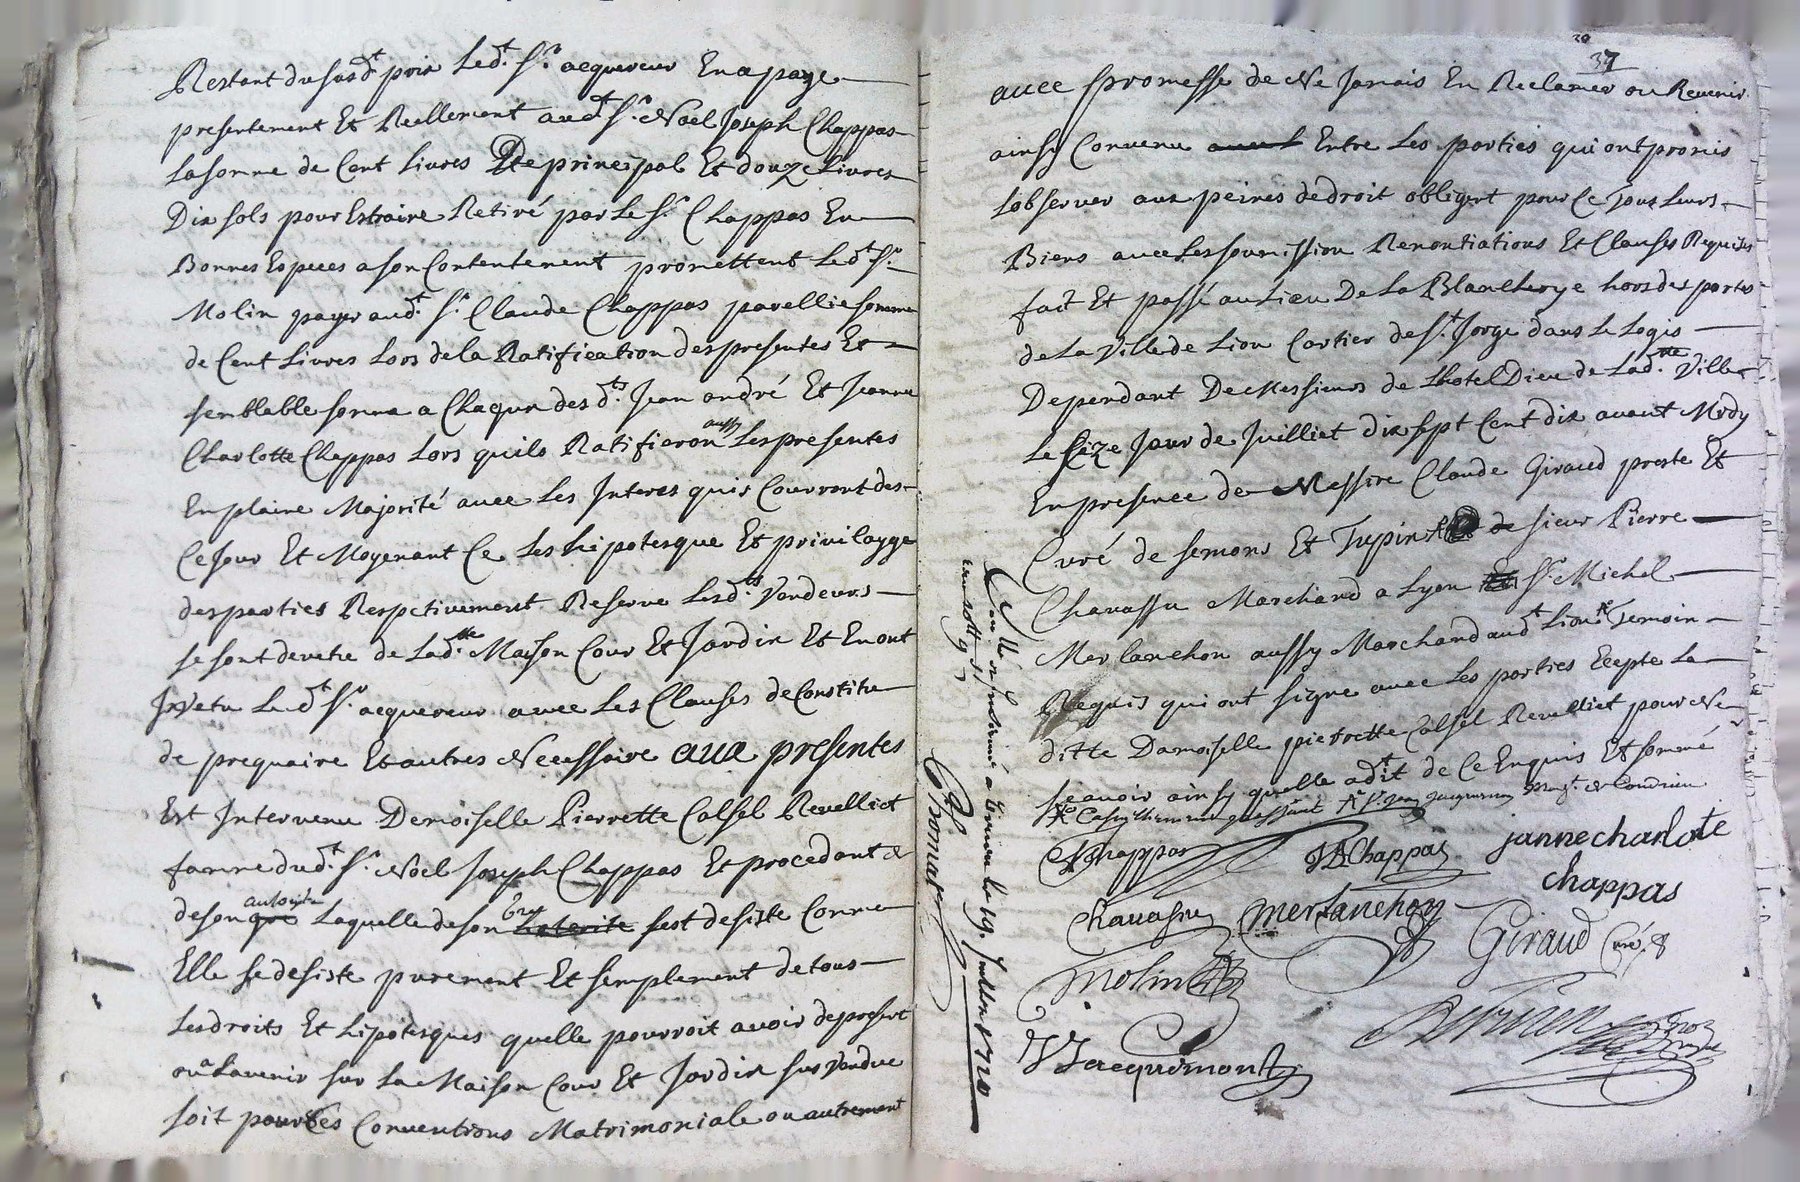 Restant du susdt prix Ledt Sr acquereur En a paye
presentement Et Reellement audt Sr Noel Joseph Chappas
La somme de Cent Livres De principal Et douze Livres
Dix sols pour Estraine Retiré par Le Sr Chappas En
Bonnes Especes a son Contentement promettent Ledt Sr
Molin payer audt Sr Claude Chappas pareillie somme
de Cent Livres Lors de la Ratification des presentes Et
semblable somme a Chaqun des dts Jean andré Et Jeanne
Charlotte Chappas Lors quils Ratifieron aussy Les presentes
En plaine Majorité avec Les Interes quis Courront des
Ce Jour Et Moyenant Ce Les hipotesque Et privilayge
des parties Respetivement Reserve Lesdts Vendeurs
se sont devetu de Ladtte Maison Cour Et Jardin Et En ont
Jnvetu Ledt Sr acquereur avec Les Clauses de Constitu
de prequaire Et autres Necessaire aux presentes
Est Intervenu Demoiselle Pierrette Calsel Revelliet
famme dudt Sr Noel Joseph Chappas Et procedant de
de son autorité Laquelle de son Gre sest desiste Comme
Elle se desiste purement Et simplement de tous
Les droits Et hipotesques quelle pourroit avoir de present
ou a Lavenir sur La Maison Cour Et Jardin sus Vendue
soit pour Ces Conventions Matrimoniale ou autrement
37
avec promesse de Ne Jamais En Reclamer ou Revenir
ainsy Convenu Entre Les parties qui ont promis
Lobserver aux peines de droit obligent pour Ce Tous Leurs
Biens avec Les soumission Renontiations Et Clauses Requises
fait Et passé au Lieu De La Blancherye hors des portes
de La Ville de Lion Cartier de St Jorge dans Le Logis
Dependant De Messieurs de Lhotel Dieu de Ladtte Ville
Le seize Jour de Juilliet dix sept Cent dix avant Midy
En presence de Messire Claude Giraud prestre Et
Curé de semons Et Tupin de sieur Pierre
Chavassu Marchand a Lyon Sr Michel
Merlanchon aussy Marchand audt Lion Temoin
Requis qui ont signe avec Les parties Excepte La
ditte Damoiselle pierrette Calsel Revelliet pour Ne
scavoir ainsy quelle a dit de Ce Enquis Et sommé
Chappas
JA Chappas
janne charlote
chappas
Chavassu
Merlanchon
Giraud Curé
Molin
JJacquemont
Con lle et Insinué a le 19. Juillet 1710
Thomas